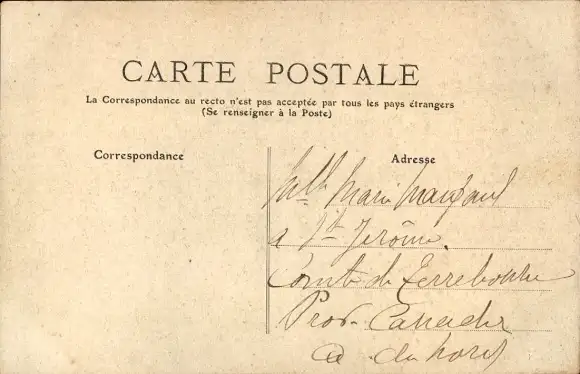 CARTE POSTALE
La Correspondance au recto n'est pas acceptée par tous les pays étrangers
(Se renseigner à la Poste)
Correspondance
Adresse
Mlle Marie
a St Jerôme.
Comté de Terrebonne
Prov. Canada
A. du Nord